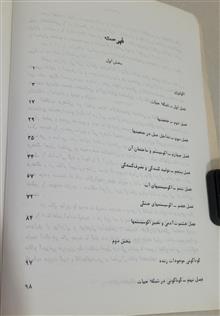 فهرست
بخش اول
اکولوژی ۱
فصل اول ـ شبکه حیات ۳
فصل دوم ـ جمعیتها ۱۷
فصل سوم ـ تداخل عمل در جمعیتها ۲۹
فصل چهارم ـ اکوسیستم و ساختمان آن ۳۵
فصل پنجم ـ تولید کنندگی و مصرف‌کنندگی ۴۴
فصل ششم ـ اکوسیستمهای آب ۶۷
فصل هفتم ـ اکوسیستمهای خشکی ۷۲
فصل هشتم ـ آدمی و تغییر اکوسیستمها ۸۴
بخش دوم
گوناگونی موجودات زنده ۹۷
فصل نهم ـ گوناگونی در شبکه حیات ۹۸